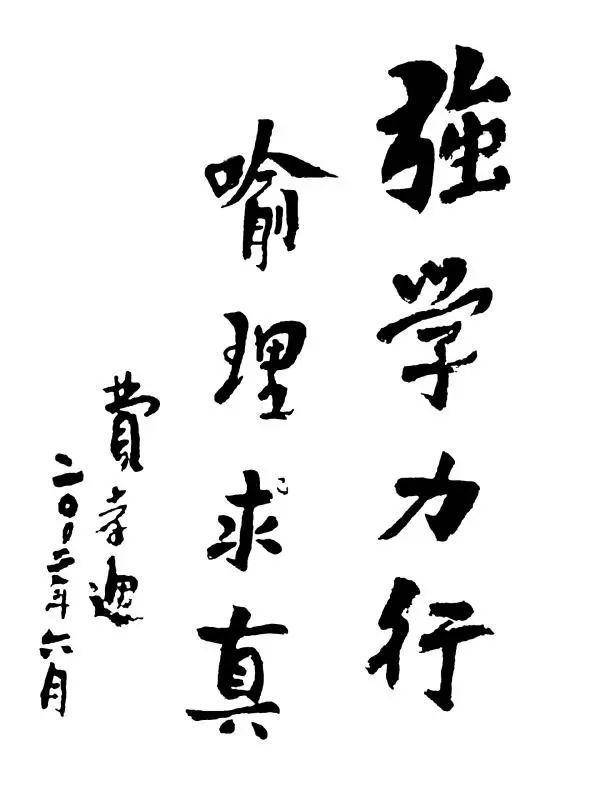 強学力行
喻理求真
費孝通
二〇〇二年六月